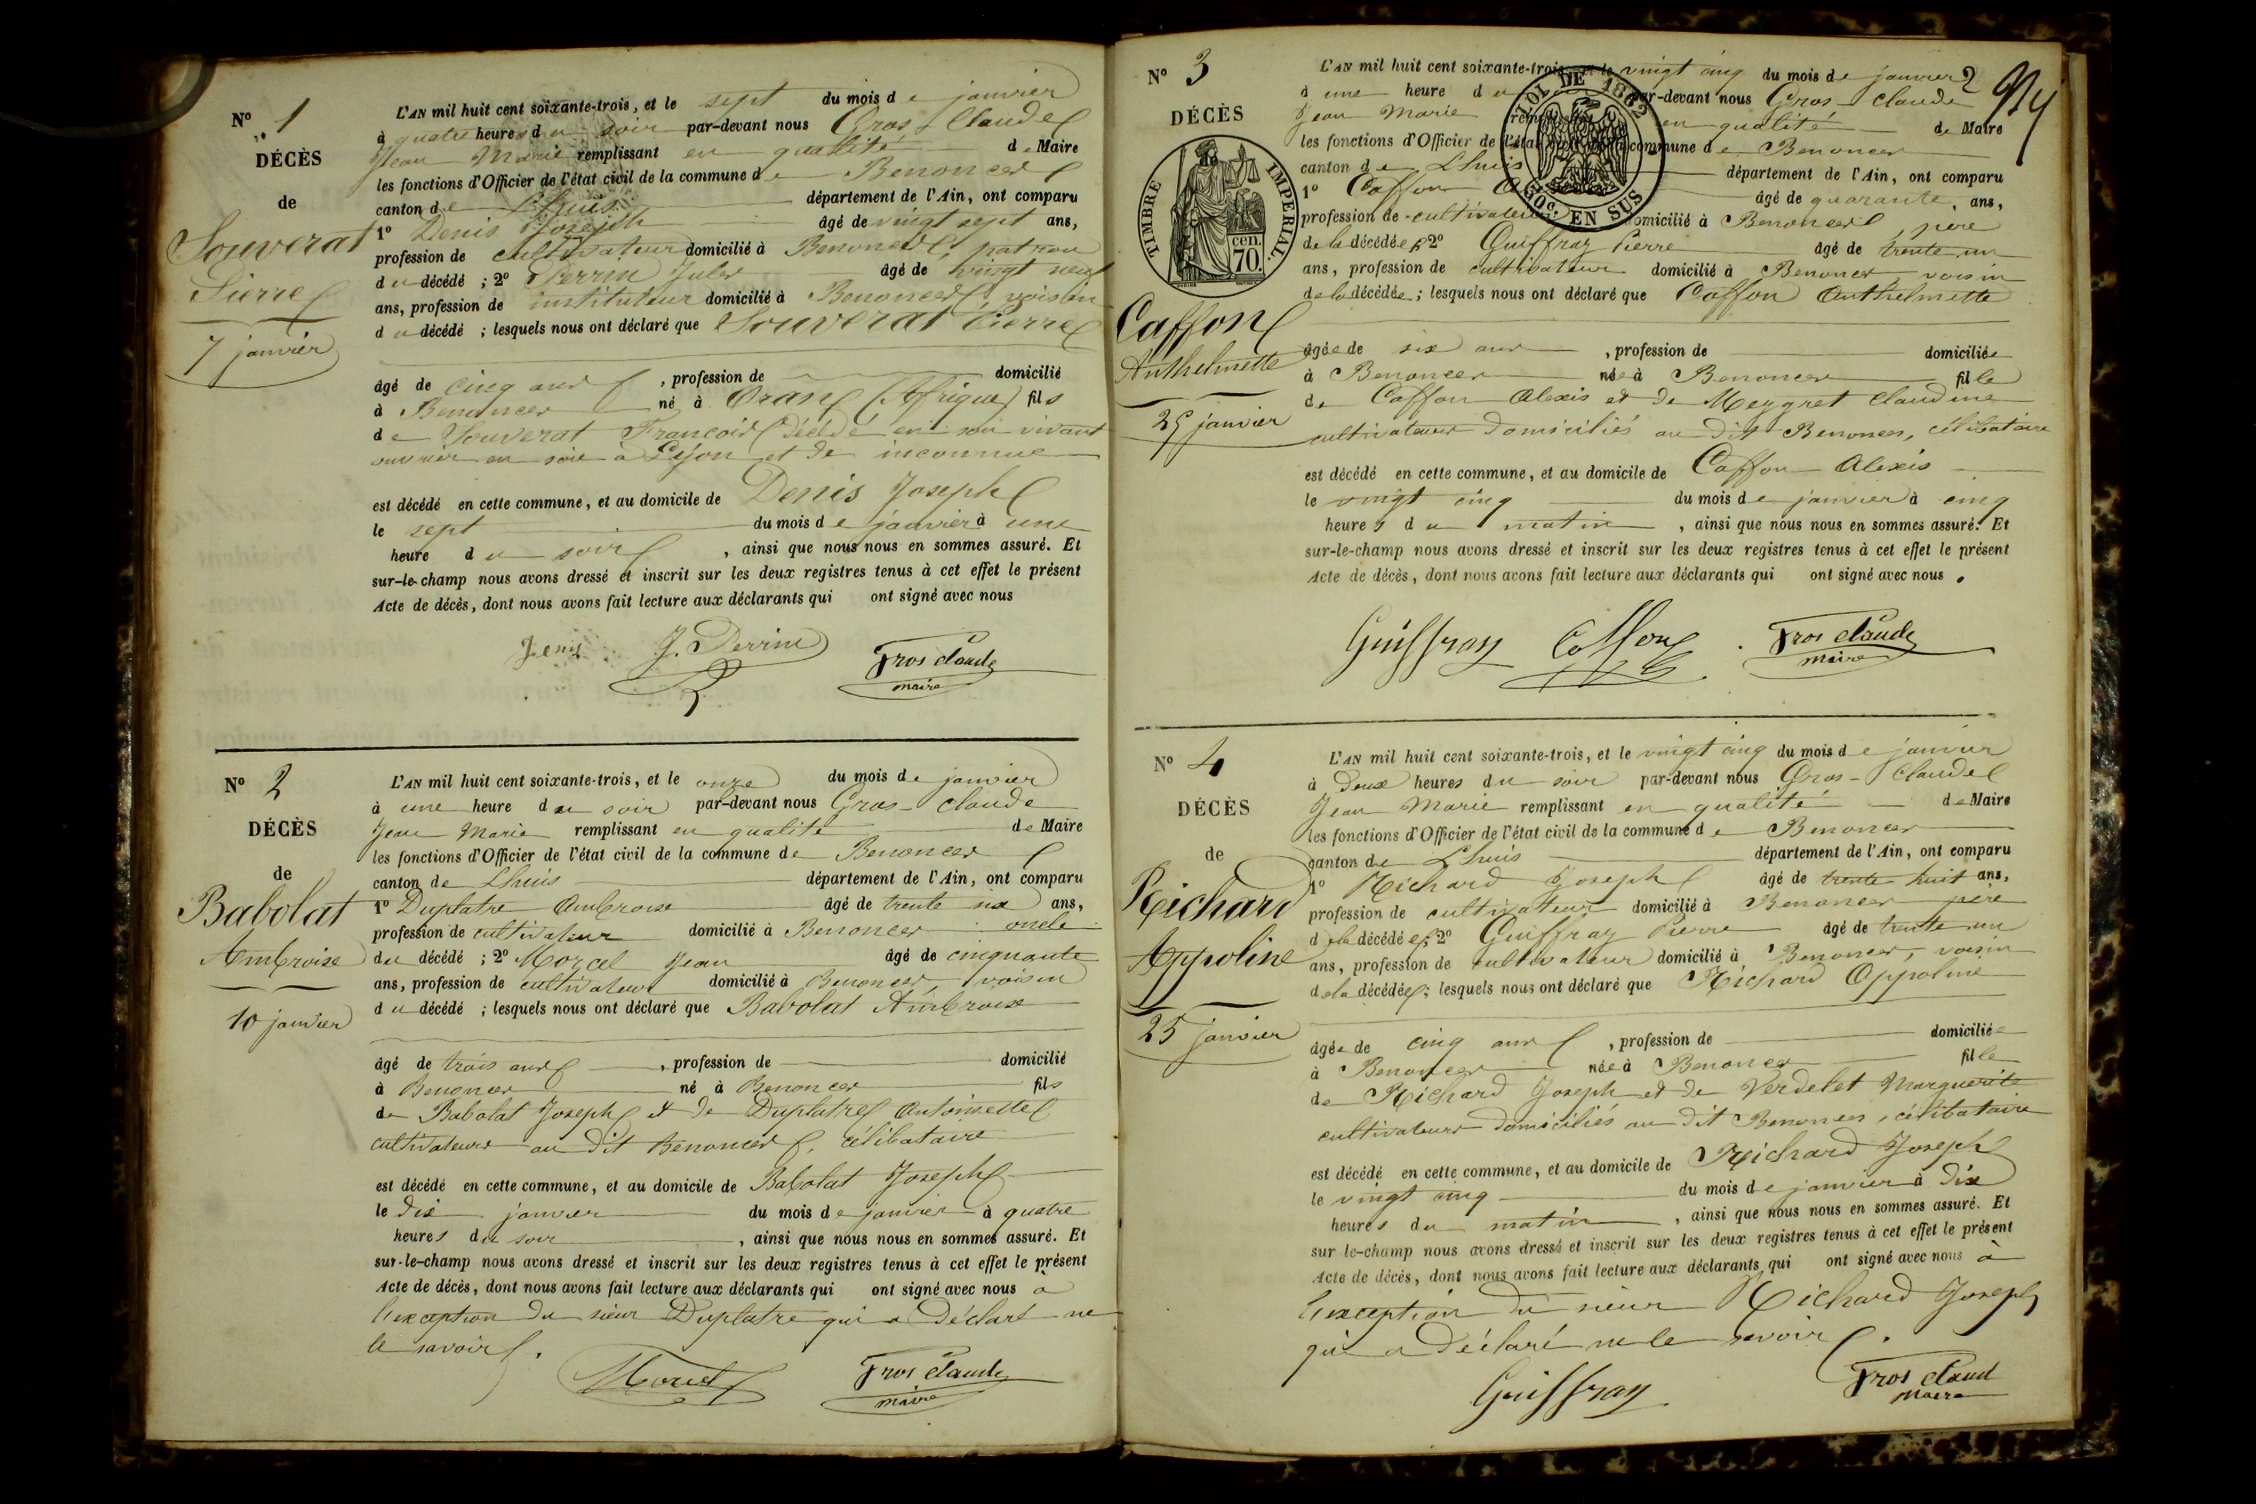 N° 1
DÉCÈS
de
Souverat
Pierre
7 janvier
L'AN mil huit cent soixante-trois, et le sept du mois de janvier
à quatre heures du soir par-devant nous Gros-Claude
Jean Marie remplissant en qualité de Maire
les fonctions d'Officier de l'état civil de la commune de Benonces
canton de Lhuis département de l'Ain, ont comparu
1° Denis Joseph âgé de vingt sept ans,
profession de cultivateur domicilié à Benonces, patron
du décédé ; 2° Perrin Jules âgé de vingt neuf
ans, profession de instituteur domicilié à Benonces, voisin
du décédé ; lesquels nous ont déclaré que Souverat Pierre
âgé de cinq ans, profession de domicilié
à Benonces né à Oran (Afrique) fils
de Souverat François décédé en son vivant
ouvrier en soie à Lyon et de inconnue
est décédé en cette commune, et au domicile de Denis Joseph
le sept du mois de janvier à une
heure du soir, ainsi que nous nous en sommes assuré. Et
sur-le-champ nous avons dressé et inscrit sur les deux registres tenus à cet effet le présent
Acte de décès, dont nous avons fait lecture aux déclarants qui ont signé avec nous
Denis J. Perrin Gros claude
maire
N° 2
DÉCÈS
de
Babolat
Ambroise
10 janvier
L'AN mil huit cent soixante-trois, et le onze du mois de janvier
à une heure du soir par-devant nous Gros-Claude
Jean Marie remplissant en qualité de Maire
les fonctions d'Officier de l'état civil de la commune de Benonces
canton de Lhuis département de l'Ain, ont comparu
1° Duplatre Ambroise âgé de trente six ans,
profession de cultivateur domicilié à Benonces oncle
du décédé ; 2° Morcel Jean âgé de cinquante
ans, profession de cultivateur domicilié à Benonces, voisin
du décédé ; lesquels nous ont déclaré que Babolat Ambroise
âgé de trois ans, profession de domicilié
à Benonces né à Benonces fils
de Babolat Joseph et de Duplatre Antoinette
cultivateurs au dit Benonces, célibataire
est décédé en cette commune, et au domicile de Babolat Joseph
le dix janvier du mois de janvier à quatre
heures du soir, ainsi que nous nous en sommes assuré. Et
sur-le-champ nous avons dressé et inscrit sur les deux registres tenus à cet effet le présent
Acte de décès, dont nous avons fait lecture aux déclarants qui ont signé avec nous à
l'exception du sieur Duplatre qui a déclaré ne
le savoir.
Morcel Gros claude
maire
2
N° 3
DÉCÈS
TIMBRE IMPERIAL.
70. cen.
LOI DE 1862
50c. EN SUS
Caffon
Anthelmette
25 janvier
L'AN mil huit cent soixante-trois, et le vingt cinq du mois de janvier
à une heure du par-devant nous Gros-Claude
Jean Marie remplissant en qualité de Maire
les fonctions d'Officier de l'état civil de la commune de Benonces
canton de Lhuis département de l'Ain, ont comparu
1° Caffon âgé de quarante, ans,
profession de cultivateur domicilié à Benonces, père
de la décédée ; 2° Guiffray Pierre âgé de trente un
ans, profession de cultivateur domicilié à Benonces, voisin
de la décédée ; lesquels nous ont déclaré que Caffon Anthelmette
âgée de six ans, profession de domiciliée
à Benonces née à Benonces fille
de Caffon Alexis et de Meygret Claudine
cultivateurs domiciliés au dit Benonces, célibataire
est décédé en cette commune, et au domicile de Caffon Alexis
le vingt cinq du mois de janvier à cinq
heures du matin, ainsi que nous nous en sommes assuré. Et
sur-le-champ nous avons dressé et inscrit sur les deux registres tenus à cet effet le présent
Acte de décès, dont nous avons fait lecture aux déclarants qui ont signé avec nous.
Guiffray Caffon Gros claude
maire
N° 4
DÉCÈS
de
Richard
Appoline
25 janvier
L'AN mil huit cent soixante-trois, et le vingt cinq du mois de janvier
à deux heures du soir par-devant nous Gros-Claude
Jean Marie remplissant en qualité de Maire
les fonctions d'Officier de l'état civil de la commune de Benonces
canton de Lhuis département de l'Ain, ont comparu
1° Richard Joseph âgé de trente huit ans,
profession de cultivateur domicilié à Benonces père
de la décédée ; 2° Guiffray Pierre âgé de trente un
ans, profession de cultivateur domicilié à Benonces, voisin
de la décédée ; lesquels nous ont déclaré que Richard Appoline
âgée de cinq ans, profession de domiciliée
à Benonces née à Benonces fille
de Richard Joseph et de Verdelet Marguerite
cultivateurs domiciliés au dit Benonces, célibataire
est décédé en cette commune, et au domicile de Richard Joseph
le vingt cinq du mois de janvier à dix
heures du matin, ainsi que nous nous en sommes assuré. Et
sur-le-champ nous avons dressé et inscrit sur les deux registres tenus à cet effet le présent
Acte de décès, dont nous avons fait lecture aux déclarants qui ont signé avec nous à
l'exception du sieur Richard Joseph
qui a déclaré ne le savoir.
Guiffray Gros claud
maire